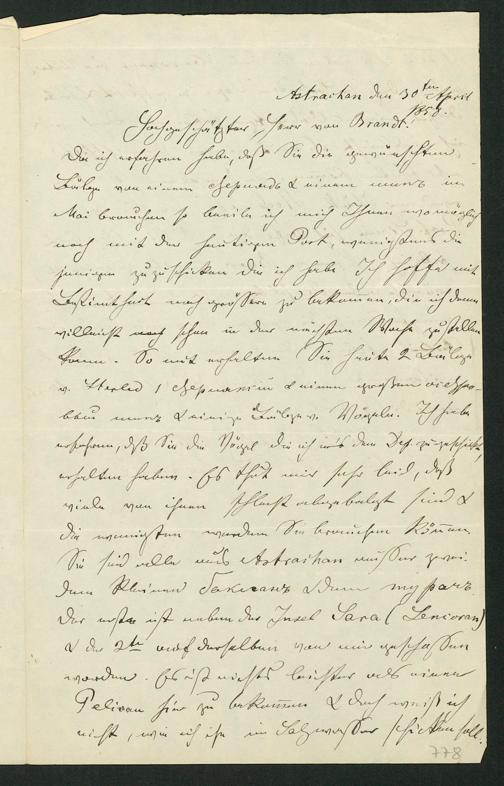 Astrachan den 30ten April
185
Hochgeschätzter Herr von Brandt.
Da ich erfahren habe, daß Sie die gewünschten
Bälge von einem & einem im
Mai brauchen so beeile ich mich Ihnen womöglich
noch mit der heutigen Post, wenigstens die
jenigen zuzuschicken die ich habe Ich hoffe mit
Bestimtheit noch grössere zu bekomen, die ich dann
villeicht schon in der nächsten Woche zustellen
kann. So mit erhalten Sie heute 2 Bälge
v. 1 & einen großen
& einige Bälge v. Vögeln. Ich habe
erfahren, daß Sie die Vögel die ich zugeschickt,
erhalten haben. Es thut mir sehr leid, daß
viele von ihnen schlecht abgebalgt sind &
die wenigsten werden Sie brauchen können
Sie sind alle aus Astrachan ausser zwei
dem kleinen Бакланъ & dem
der erste ist neben der Insel Sara (Lencoran)
& der 2te auf derselben von mir geschossen
worden. Es ist nichts leichter als einen
Pelican hier zu bekommen & doch weiß ich
nicht, wie ich ihn im Salzwasser schicken soll.
778